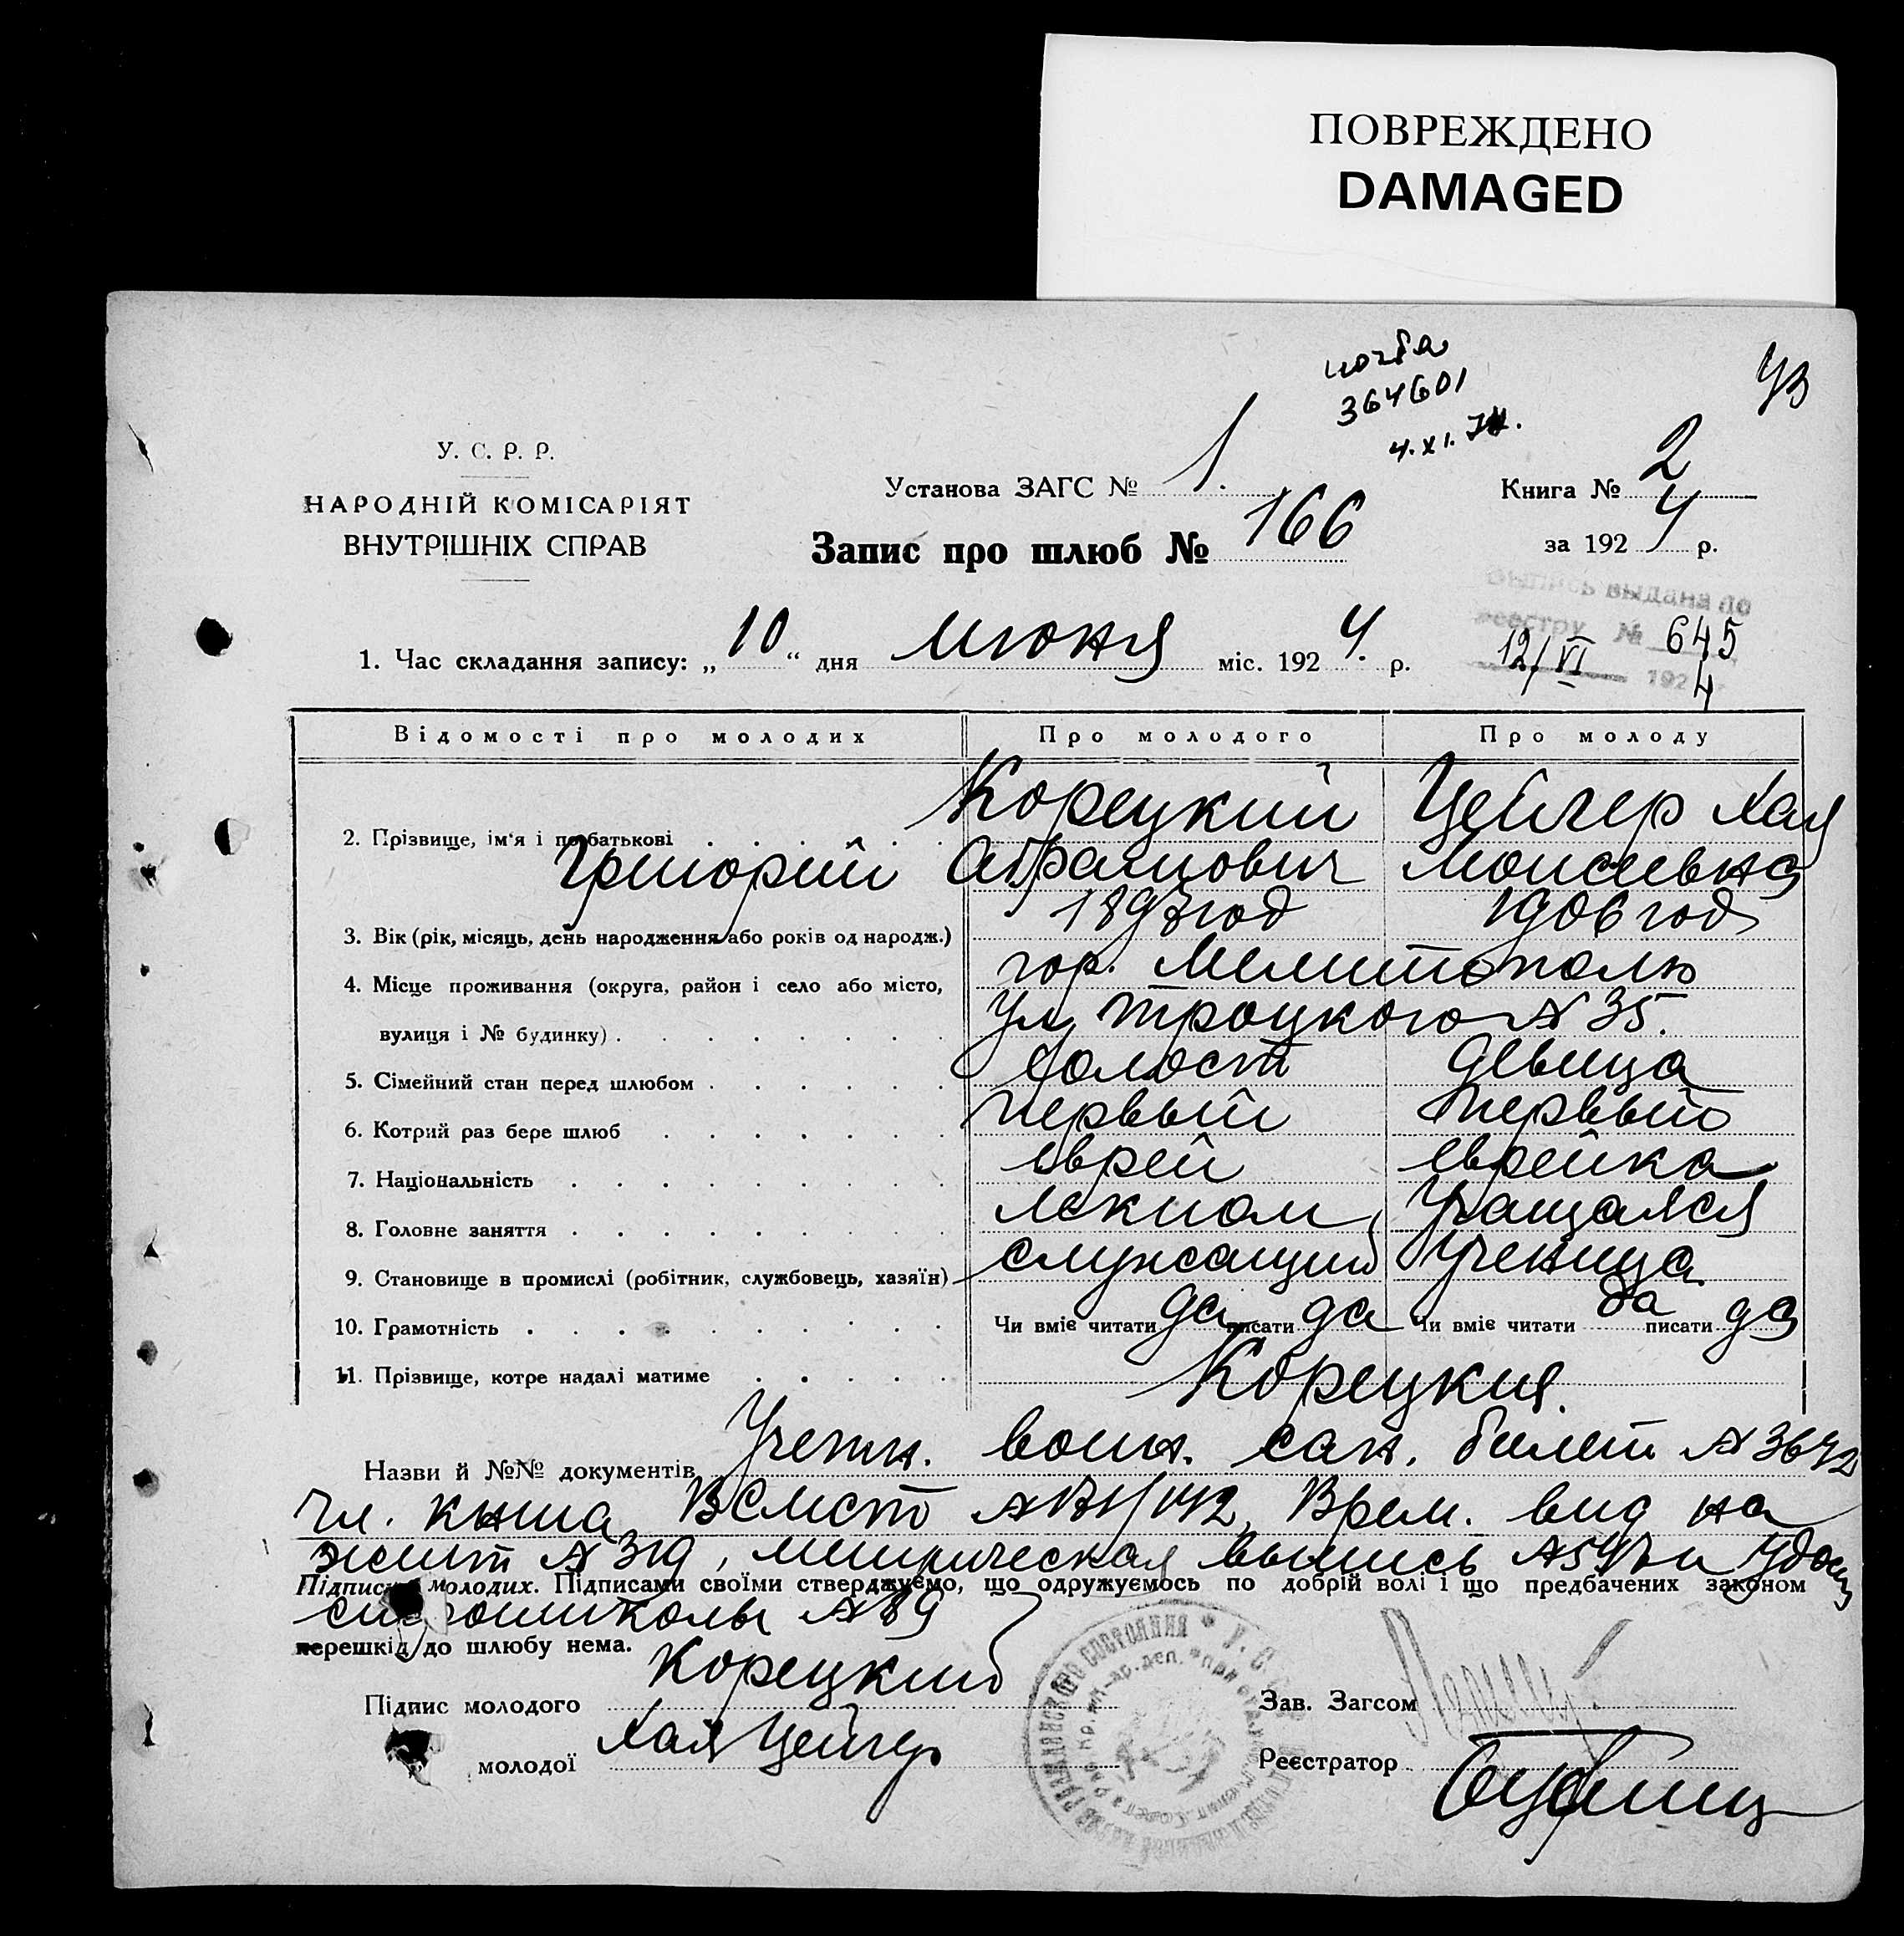 ПОВРЕЖДЕНО
DAMAGED
364601
4. XI.
У. С. Р. Р.
НАРОДНІЙ КОМІСАРІЯТ
ВНУТРІШНІХ СПРАВ
Установа ЗАГС № 1.
Книга № 2
Запис про шлюб № 166
за 1924 р.
Выпись выдана по
реестру № 645
12/VI 1924
1. Час складання запису: „10“ дня июня міс. 1924. р.
Відомості про молодих Про молодого Про молоду
2. Прізвище, ім'я і по батькові Корецкий Цейгер Хая
Григорий Абрамович Моисеевна
3. Вік (рік, місяць, день народження або років од народж.) 1897 год 1906 год
4. Місце проживання (округа, район і село або місто, гор. Мелитополь
вулиця і № будинку) ул. Троцкого № 35.
5. Сімейний стан перед шлюбом холост девица
6. Котрий раз бере шлюб первый первый
7. Національність еврей еврейка
8. Головне заняття лекпом, учащаяся
9. Становище в промислі (робітник, службовець, хазяїн) служащий ученица
10. Грамотність Чи вміє читати да писати да Чи вміє читати да писати да
11. Прізвище, котре надалі матиме Корецкие.
Назви й №№ документів Учетн. воин. сан. билет № 3642
чл. книга № Врем. вид на
жит № 319, метрическая выпись № и удост
№ 89
Підписи молодих. Підписами своїми стверджуємо, що одружуємось по добрій волі і що предбачених законом
перешкід до шлюбу нема.
Підпис молодого Корецкий
Зав. Загсом
молодої Хая Цейгер
Реєстратор